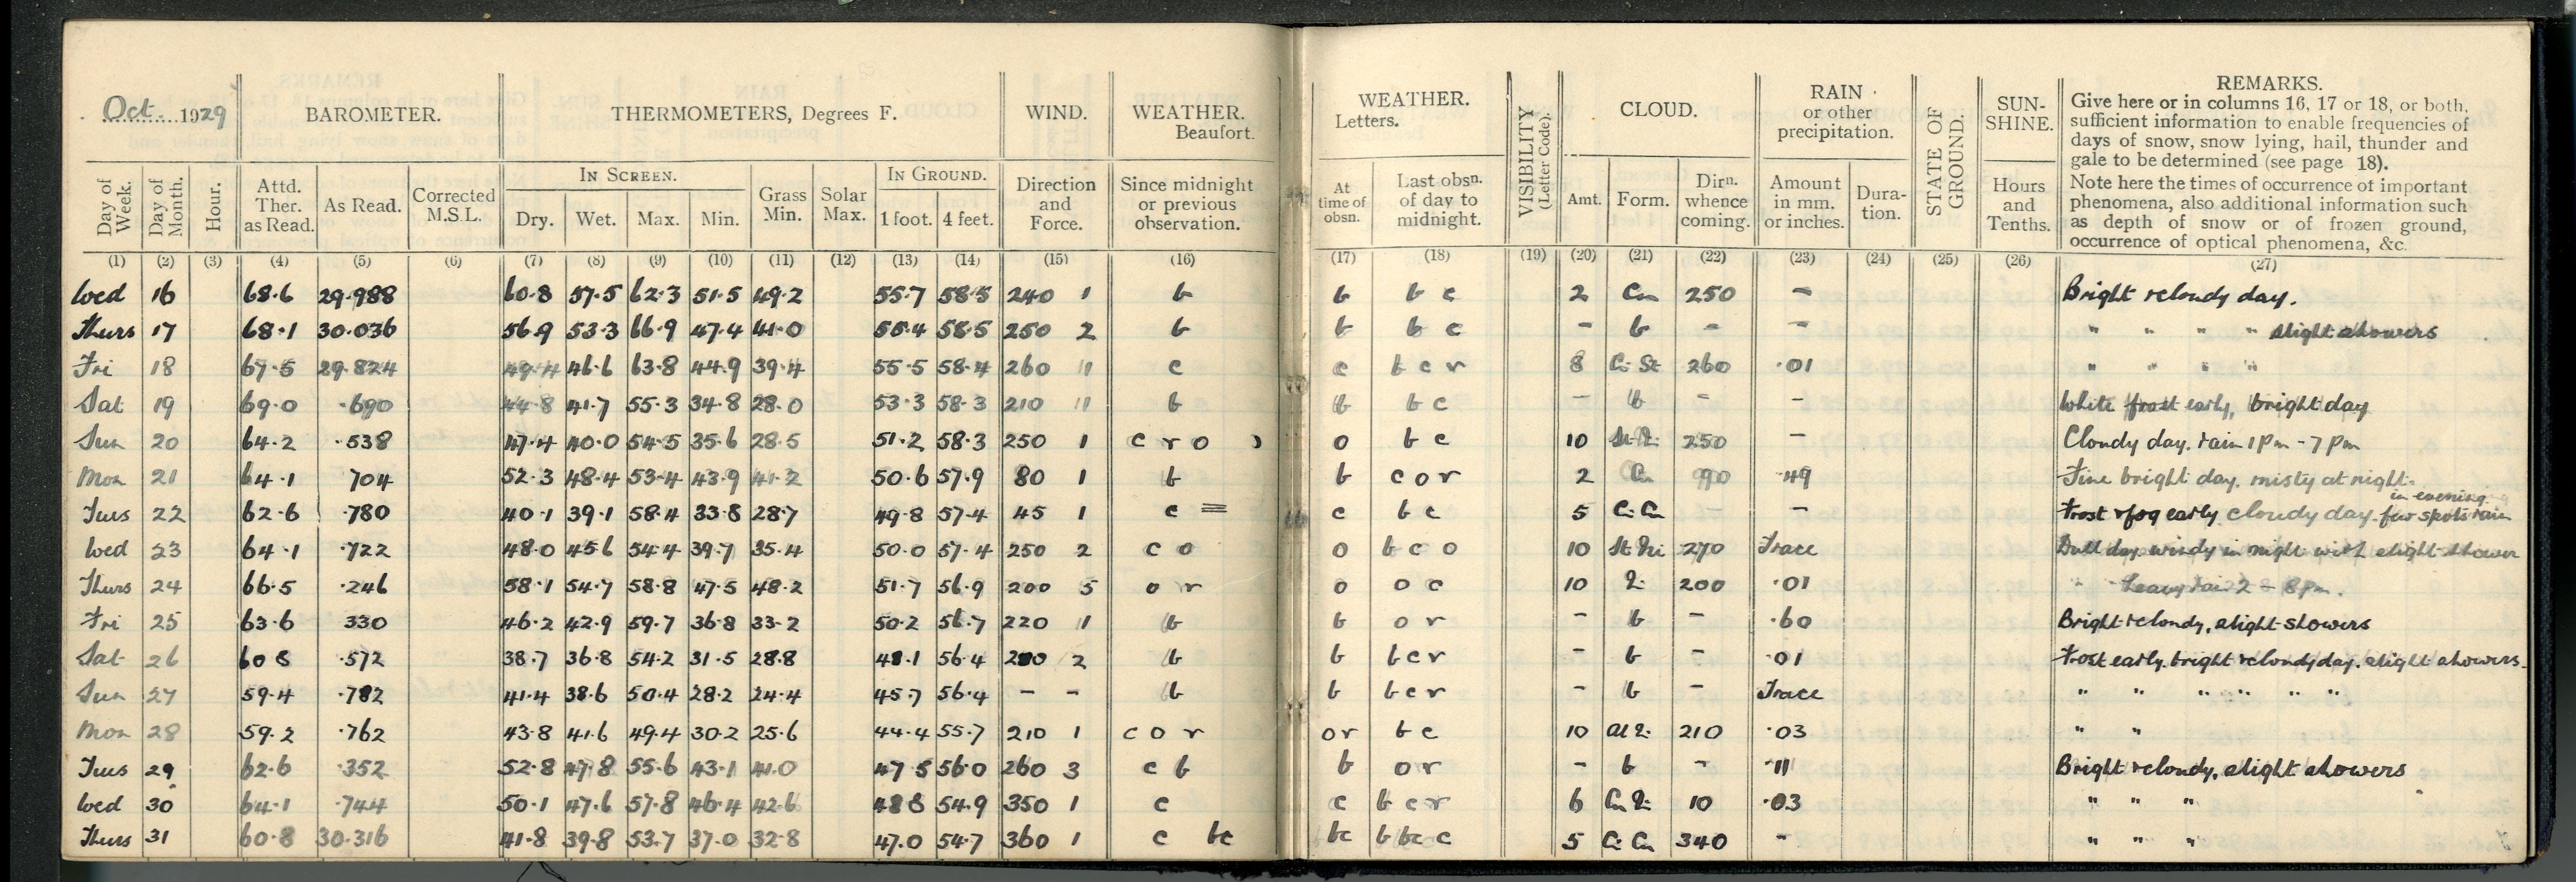 Oct. 1929 BAROMETER. THERMOMETERS, Degrees F. WIND. WEATHER. Beaufort. WEATHER. Letters. VISIBILITY (Letter Code). CLOUD. RAIN or other precipitation. STATE OF GROUND. SUN-SHINE. REMARKS.
Give here or in columns 16, 17 or 18, or both, sufficient information to enable frequencies of days of snow, snow lying, hail, thunder and gale to be determined (see page 18).
Note here the times of occurrence of important phenomena, also additional information such as depth of snow or of frozen ground, occurrence of optical phenomena, &c.
IN SCREEN. IN GROUND.
Day of Week. Day of Month. Hour. Attd. Ther. as Read. As Read. Corrected M.S.L. Dry. Wet. Max. Min. Grass Min. Solar Max. 1 foot. 4 feet. Direction and Force. Since midnight or previous observation. At time of obsn. Last obsn. of day to midnight. Amt. Form. Dirn. whence coming. Amount in mm. or inches. Dura-tion. Hours and Tenths.
(1) (2) (3) (4) (5) (6) (7) (8) (9) (10) (11) (12) (13) (14) (15) (16) (17) (18) (19) (20) (21) (22) (23) (24) (25) (26) (27)
Wed 16 68.6 29.988 60.8 57.5 62.3 51.5 49.2 55.7 58.5 240 1 b b b c 2 Cu 250 - Bright & cloudy day.
Thurs 17 68.1 30.036 56.9 53.3 66.9 47.4 41.0 55.4 58.5 250 2 b b b c - b - - " " " " slight showers
Fri 18 67.5 29.824 49.4 46.6 63.8 44.9 39.4 55.5 58.4 260 11 c c b c r 8 Ci St 260 .01 " " " "
Sat 19 69.0 .690 44.8 41.7 55.3 34.8 28.0 53.3 58.3 210 11 b b b c - b - - White frost early, bright day
Sun 20 64.2 .538 47.4 40.0 54.5 35.6 28.5 51.2 58.3 250 1 c r o o b c 10 250 - Cloudy day. rain 1pm - 7pm
Mon 21 64.1 704 52.3 48.4 53.4 43.9 41.2 50.6 57.9 80 1 b b c o r 2 Cu 90 .49 Fine bright day. misty at night.
Tues 22 62.6 .780 40.1 39.1 58.4 33.8 28.7 49.8 57.4 45 1 c ≡ c b c 5 Ci Cu - - Frost & fog early cloudy day. few spots rain in evening
Wed 23 64.1 .722 48.0 45.6 54.4 39.7 35.4 50.0 57.4 250 2 c o o b c o 10 St Ni 270 Trace Dull day windy in night with slight shower
Thurs 24 66.5 .246 58.1 54.7 58.8 47.5 48.2 51.7 56.9 200 5 o r o o c 10 200 .01 " heavy rain 2 - 8pm.
Fri 25 63.6 330 46.2 42.9 59.7 36.8 33.2 50.2 56.7 220 1 b b o r - b - .60 Bright & cloudy, slight showers
Sat 26 60 8 .572 38.7 36.8 54.2 31.5 28.8 48.1 56.4 2 b b b c r - b - .01 Frost early. bright & cloudy day. slight showers.
Sun 27 59.4 .782 41.4 38.6 50.4 28.2 24.4 45.7 56.4 - - b b b c r - b - Trace " " " " " "
Mon 28 59.2 .762 43.8 41.6 49.4 30.2 25.6 44.4 55.7 210 1 c o r o r b c 10 210 .03 " "
Tues 29 62.6 .352 52.8 47.8 55.6 43.1 41.0 47 5 56.0 260 3 c b b o r - b - .11 Bright & cloudy, slight showers
Wed 30 64.1 .744 50.1 47.6 57.8 46.4 42.6 48 8 54.9 350 1 c c b c r 6 10 .03 " " "
Thurs 31 60.8 30.316 41.8 39.8 53.7 37.0 32.8 47.0 54.7 360 1 c bc bc b bc c 5 Ci Cu 340 - " " "